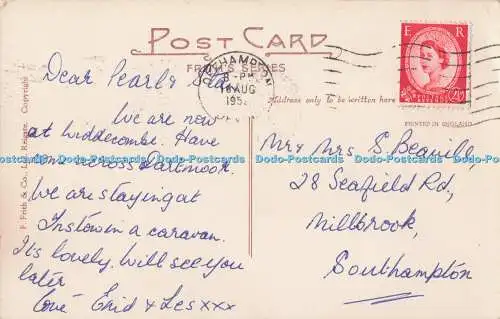 POST CARD
FRITH'S SERIES
OKEHAMPTON
8-PM
16 AUG
195
E R
POSTAGE REVENUE
2½D
Address only to be written here
PRINTED IN ENGLAND
F. Frith & Co., Ltd., Reigate. Copyright
Dear Pearl &
We are now
at Widdecombe. Have
come across Dartmoor.
We are staying at
Instow in a caravan.
Its lovely. Will see you
later
Love Enid & Les xxx
Mr & Mrs S. Beguille,
28 Seafield Rd,
Millbrook,
Southampton
Dodo-Postcards Dodo-Postcards Dodo-Postcards Dodo-Postcards Dodo-Postcards Dodo-Postcards